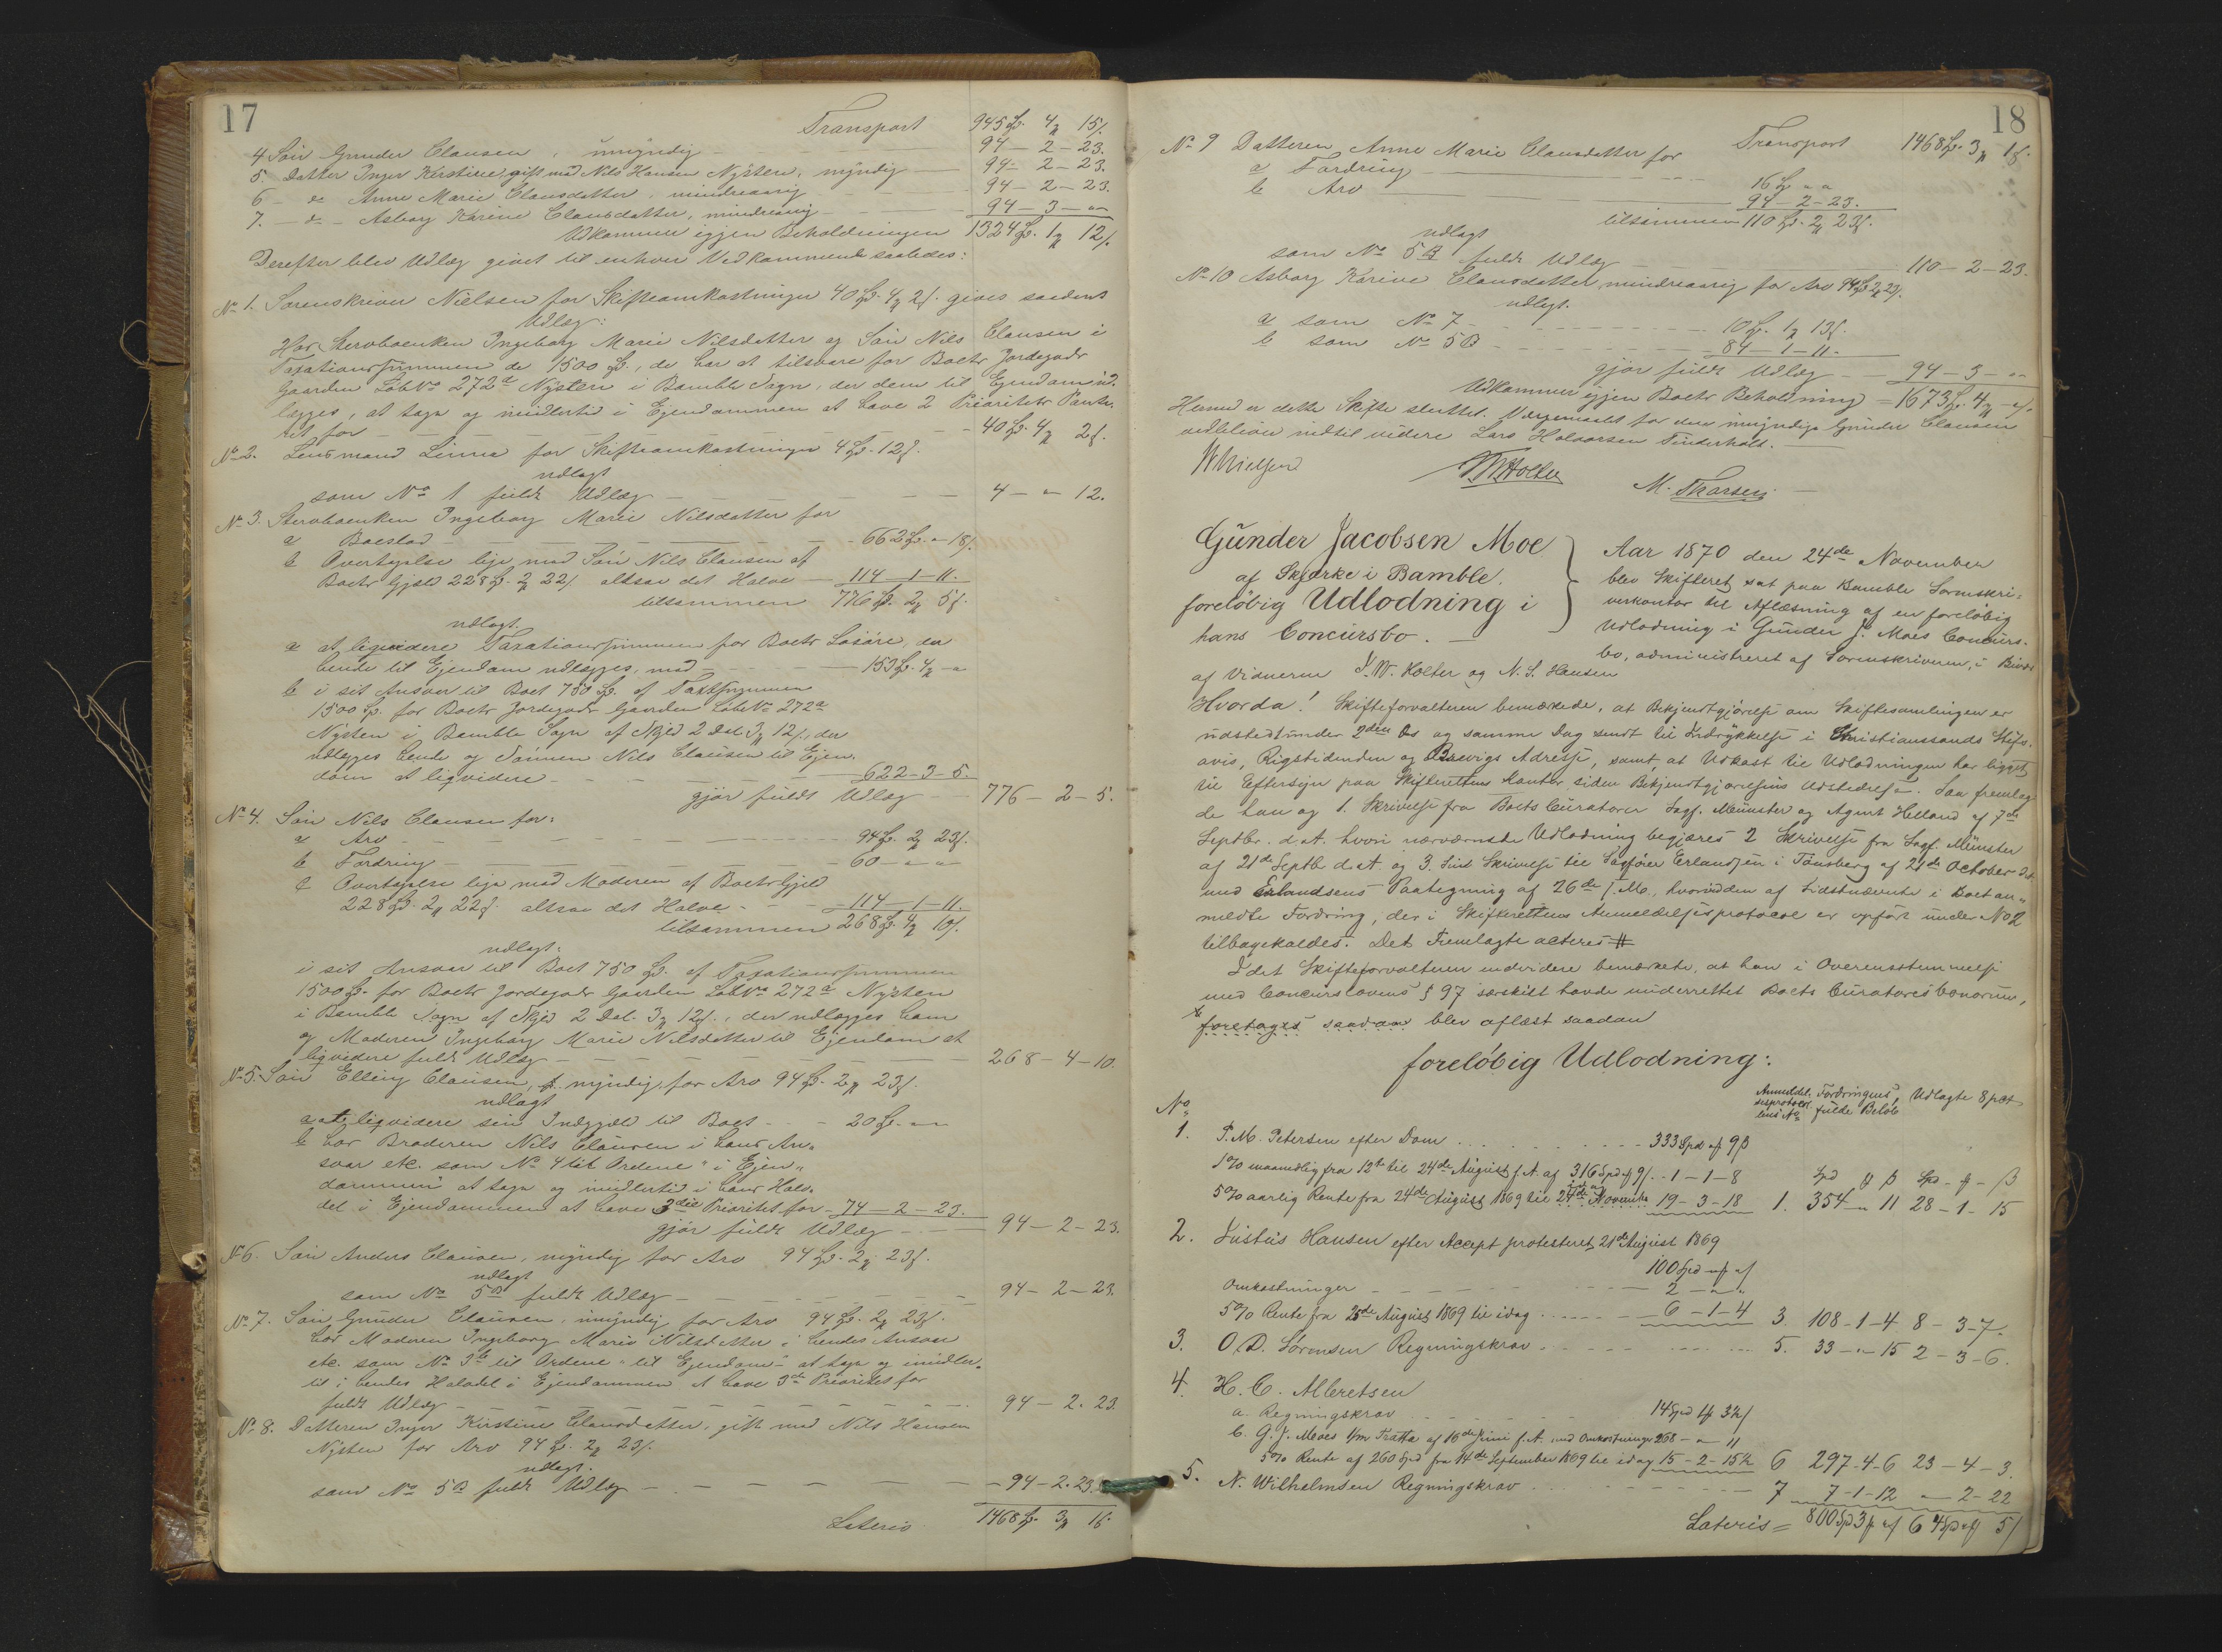 17
Transport 945 Sp. 4 ℔ 15 ſ.
4 Søn Gunder Clausen, umyndig — 94 — 2 — 23.
5. Datter Inger Kirstine, gift med Nils Hansen Nysten, myndig — 94 — 2 — 23.
6 — do Anne Marie Clausdatter, mindreaarig — 94 — 2 — 23.
7. — do — Asborg Karine Clausdatter, mindreaarig — 94 — 3 — „
Udkommer igjen Beholdningen 1324 Sp. 1 ℔ 12 ſ.
Derefter blev Udlæg givet til enhver Vedkommende saaledes:
No 1. Sorenskriver Nielsen for Skifteomkostninger 40 Sp. 4 ℔ 2 ſ. gives saadant
Udlæg:
Hos Stervboenken Ingeborg Marie Nilsdatter og Søn Nils Clausen i
Taxationssummen de 1500 Sp., de har at tilsvare for Boets Jordegods
Gaarden Løb No 272a Nysten i Bamble Sogn, der dem til Ejendom ud-
lægges, at tage og imidlertid i Ejendommen at have 2 Prioritets Pante-
ret for — 40 Sp. 4 ℔ 2 ſ.
No 2. Lensmand Linna for Skifteomkostninger 4 Sp. 12 ſ.
udlagt
som No 1 fuldt Udlæg — 4 — „ — 12.
No 3. Stervboenken Ingeborg Marie Nilsdatter for
a Boeslod — 662 Sp. „ 18 ſ.
b Overtagelse lige med Søn Nils Clausen af
Boets Gjæld 228 Sp. 2 ℔ 22 ſ altsaa det Halve — 114 — 1 — 11.
tilsammen 776 Sp. 2 ℔ 5 ſ.
udlagt.
a at liqvidere Taxationssummen for Boets Løsøre, der
hende til Ejendom udlægges, med — 153 Sp. 4 ℔ — „
b i sit Ansvar til Boet 750 Sp. af Taxtsummen
1500 Sp. for Boets Jordegods Gaarden Løb No 272a
Nysten i Bamble Sogn af Skyld 2 Dal. 3 ℔ 12 ſ., der
udlægges hende og Sønnen Nils Clausen til Ejen-
dom at liqvidere — 622 — 3 — 5.
gjør fuldt Udlæg — 776 — 2 — 5.
No 4. Søn Nils Clausen for:
a Arv — 94 Sp. 2 ℔ 23 ſ.
b Fordring — 60 — „ — „
c Overtagelse lige med Moderen af Boets Gjæld
228 Sp. 2 ℔ 22 ſ. altsaa det Halve — 114 — 1 — 11.
tilsammen 268 Sp. 4 ℔ 10 ſ.
udlagt:
i sit Ansvar til Boet 750 Sp. af Taxationssummen
1500 Sp. for Boets Jordegods Gaarden Løb No 272a Nysten
i Bamble Sogn af Skyld 2 Dal. 3 ℔ 12 ſ., der udlægges ham
og Moderen Ingeborg Marie Nilsdatter til Ejendom at
liqvidere fuldt Udlæg — 268 — 4 — 10.
No 5. Søn Elling Clausen, myndig, for Arv 94 Sp. 2 ℔ 23 ſ.
udlagt
a at liqvidere sin Indgjæld til Boet — 20 Sp. „ „
b hos Broderen Nils Clausen i hans An-
svar etc. som No 4 til Ordene „i Ejen-
dommen“ at tage og imidlertid i hans Halv-
del i Ejendommen at have 3die Prioritet for — 74 — 2 — 23.
gjør fuldt Udlæg — 94 — 2 — 23.
No 6. Søn Anders Clausen, myndig for Arv 94 Sp. 2 ℔ 23 ſ.
udlagt
som No 5B fuldt Udlæg — 94 — 2 — 23.
No 7. Søn Gunder Clausen, umyndig for Arv 94 Sp. 2 ℔ 23 ſ.
hos Moderen Ingeborg Marie Nilsdatter i hendes Ansvar
etc. som No 3b til Ordene „til Ejendom“ at tage og imidler-
tid i hendes Halvdel i Ejendommen at have 3die Prioritet for
fuldt Udlæg — 94 — 2. 23.
No 8. Datteren Inger Kirstine Clausdatter, gift med Nils Hansen
Nysten for Arv 94 Sp. 2 ℔ 23 ſ.
udlagt.
som No 5B fuldt Udlæg — 94 — 2. 23.
Lateris 1468 Sp. 3 ℔ 18
18
Transport 1468 Sp. 3 ℔ 18.
No 9 Datteren Anne Marie Clausdatter for
a Fordring — 16 Sp „ „
b Arv — 94 — 2 — 23.
tilsammen 110 Sp. 2 ℔ 23 ſ.
udlagt
som No 5B fuldt Udlæg — 110 — 2 — 23.
No 10 Asborg Karine Clausdatter mindreaarig for Arv 94 Sp 2 ℔ 23 ſ.
udlagt.
a som No 7 — 10 Sp. 1 ℔ 13 ſ.
b som No 5B — 84 — 1 — 11.
gjør fuldt Udlæg — 94 — 3 — „
Udkommer igjen Boets Beholdning = 1673 Sp. 4 ℔ „ ſ.
Hermed er dette Skifte sluttet. Værgemaalet for den umyndige Gunder Clausen
vedbliver indtil videre Lars Halvorsen Tinderholt.
WNielsen JWHolter M. Thorsen
Gunder Jacobsen Moe
af Skjærke i Bamble.
foreløbig Udlodning i
hans Concursbo.
Aar 1870 den 24de November
blev Skifteret sat paa Bamble Sorenskri-
verkontor til Aflæsning af en foreløbig
Udlodning i Gunder J. Moes Concurs-
bo, administreret af Sorenskriveren, i Bivær
af Vidnerne J. W. Holter og N. S. Hansen
Hvorda! Skifteforvalteren bemærkede, at Bekjendtgjørelse om Skiftesamlingen er
udstedt under 2den ds og samme Dag sendt til Indrykkelse i Christianssands Stifts-
avis, Rigstidenden og Brevigs Adresse, samt, at Udkast til Udlodningen har ligget
til Eftersyn paa Skifterettens Kontor siden Bekjendtgjørelsens Udstedelse. Saa fremlag-
de han og 1. Skrivelse fra Boets Curatorer Sagf. Münster og Agent Helland af 7de
Septbr. d. A. hvori nærværende Udlodning begjæres 2 Skrivelse fra Sagf. Münster
af 21de Septb. d. A. og 3. Sin Skrivelse til Sagfører Erlandsen i Tønsberg af 21de October d.A.
med Erlandsens Paategning af 26de s. M., hvorved den af Sidstnævnte i Boet an-
meldte Fordring, der i Skifterettens Anmeldelsesprotocol er opført under No 2
tilbagekaldes. Det Fremlagte acteres #
Idet Skifteforvalteren endvidere bemærkede, at han i Overensstemmelse
med Concurslovens § 97 særskilt havde underrettet Boets Curatores bonorum,
foretages saadan blev aflæst saadan
foreløbig Udlodning:
No Anmeldel-sesprotocol-lens No Fordringens fulde Beløb Udlagte 8 pct
1. P. M. Petersen efter Dom — 333 Spd „ ℔ 9 β
1 % maanedlig fra 12te til 24de August f. A. af 316 Spd „ ℔ 9 ſ. — 1 — 1 — 8 Spd ℔ β Spd — ℔ — β
5 % aarlig Rente fra 24de August 1869 til 24de November 19 — 3 — 18 1. 354 — „ 11 28 — 1 — 15
2. Justus Hansen efter Accept protesteret 21de August 1869
100 Spd „ ℔ „ ſ
Omkostninger — 2 — „ „
5 % Rente fra 25de August 1869 til idag — 6 — 1 — 4 3. 108 — 1 — 4 8 — 3 — 7.
3. O. D. Sørensen Regningskrav — 5. 33 — „ — 15 2 — 3 — 6.
4. H. C. Albretsen
a. Regningskrav — 14 Spd 1 ℔ 3½ ſ
b. G. J. Moes Tratta af 16de Juni f. A. med Omkostninger 268 — „ — 11
5 % Rente af 260 Spd fra 14de September 1869 til idag 15 — 2 — 15½ 6 297 — 4 — 6 23 — 4 — 3.
5. N. Wilhelmsen Regningskrav — 7 7 — 1 — 12 „ — 2 — 22
Lateris = 800 Spd 3 ℔ „ ſ 64 Spd „ ℔ 5 ſ